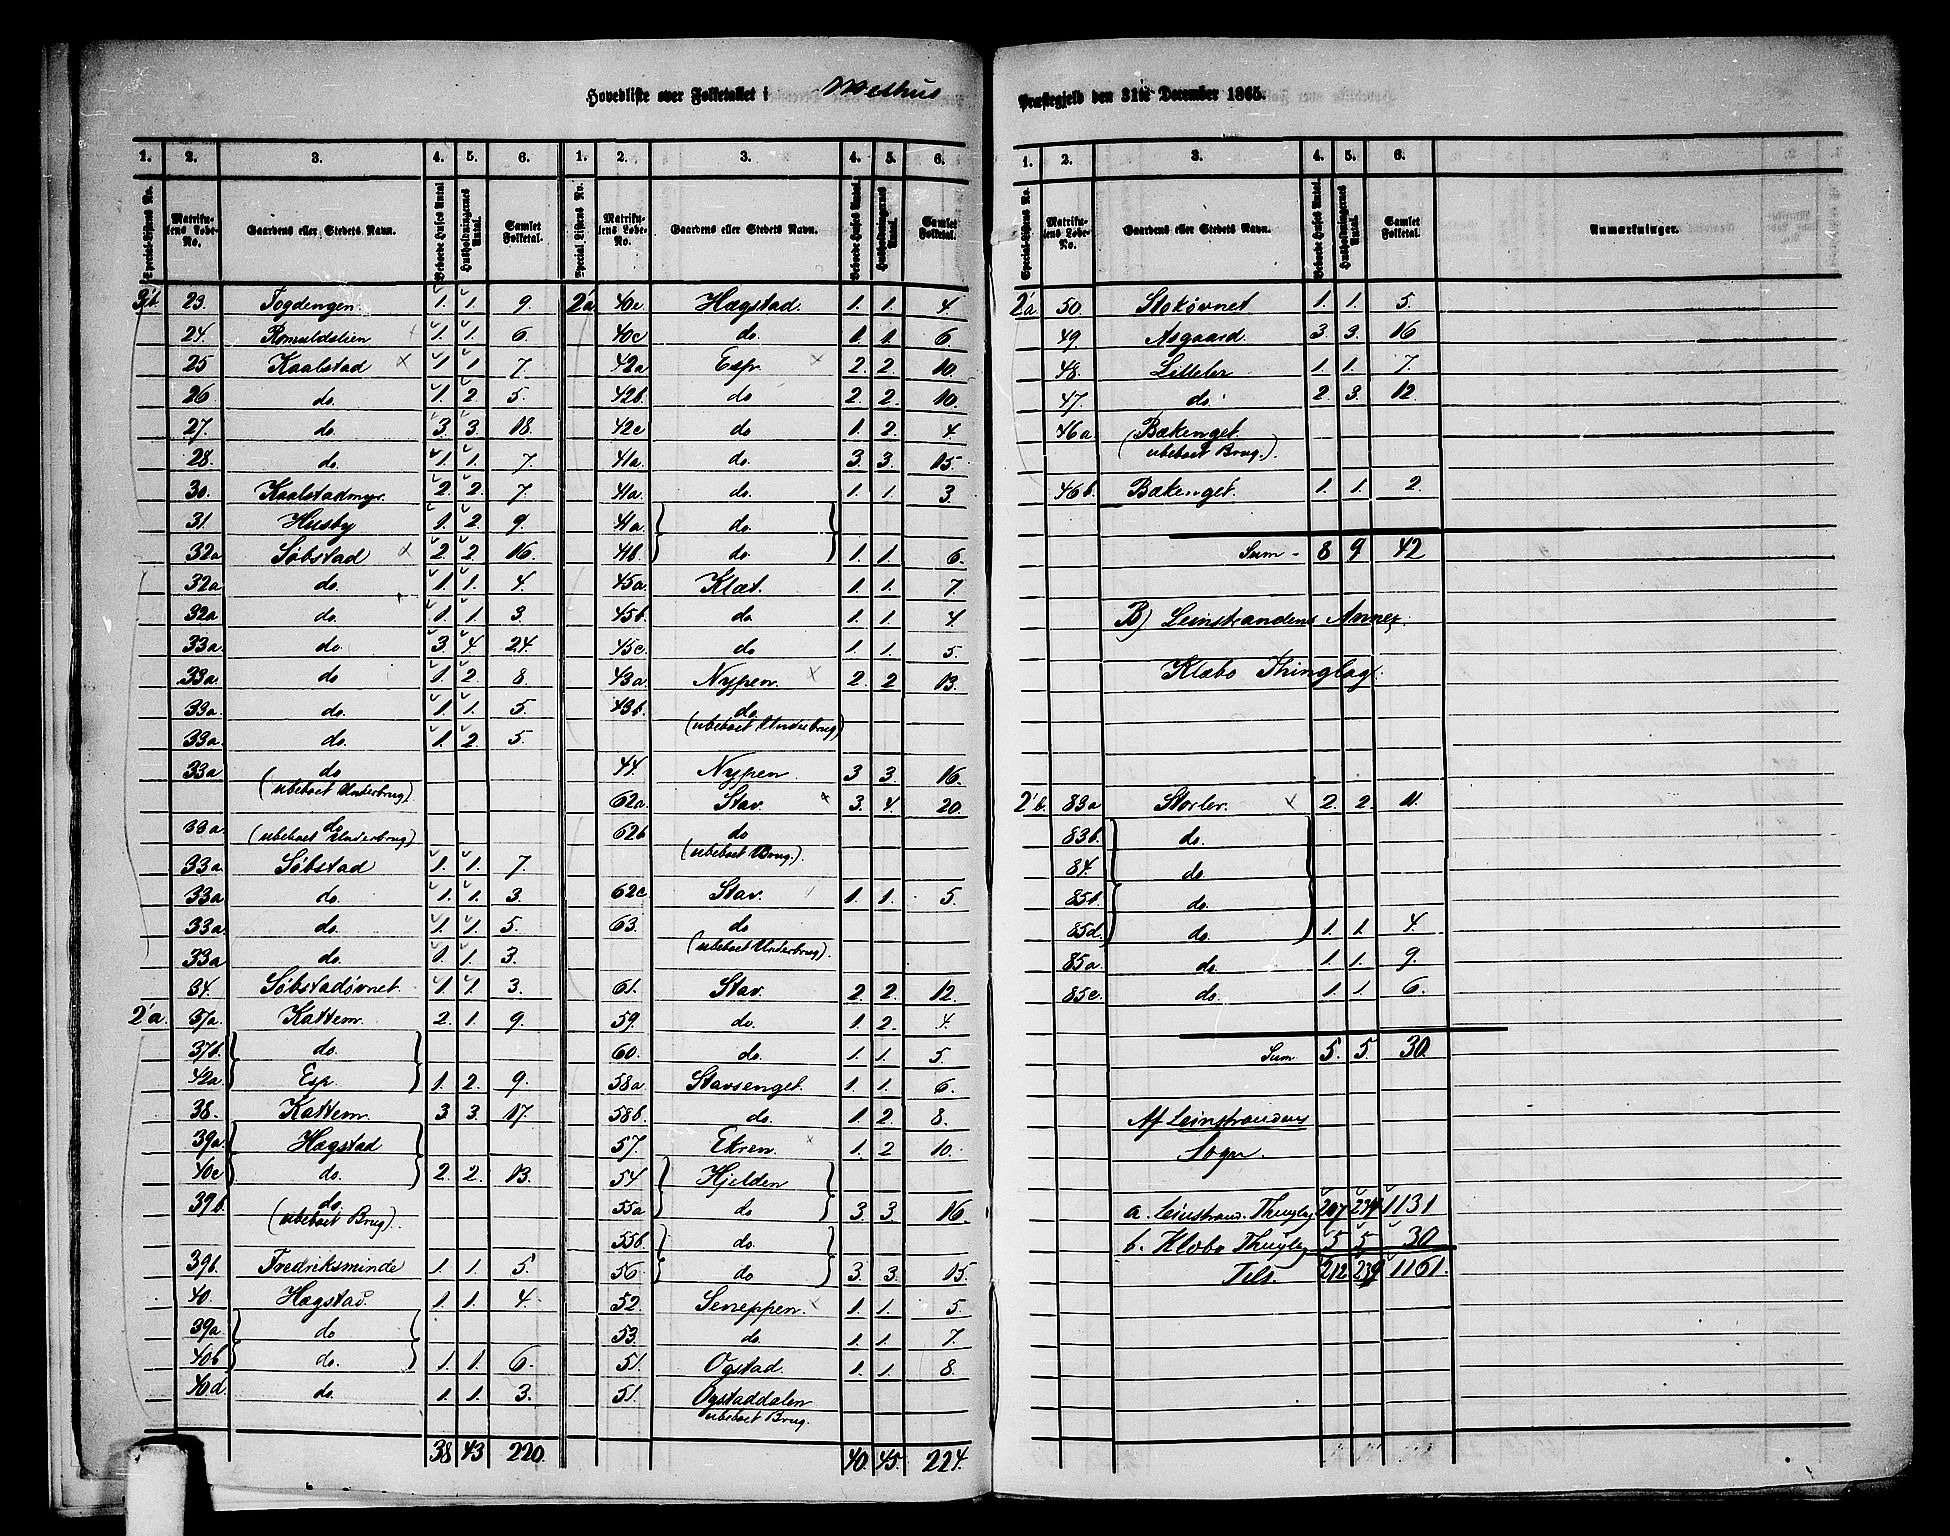 Hovedliste over Folketallet i Melhus
Præstegjeld den 31te December 1865.
1. 2. 3. 4. 5. 6. 1. 2. 3. 4. 5. 6.
Special-Listens No. Matrikulens Løbe-No. Gaardens eller Stedets Navn. Beboede Huses Antal Husholdningernes Antal. Samlet Folketal. Special Listens No. Matrikulens Løbe-No. Gaardens eller Stedets Navn. Beboede Huses Antal Husholdningernes Antal. Samlet Folketal.
23. Fogdengen. 1. 1. 9.
24. Romuldslien 1. 1. 6.
25 Kaalstad 1. 1. 7.
26 do. 1. 2 5.
27. do. 3. 3. 18.
28. do. 1. 1. 7.
30. Kaalstadmyr. 2. 2. 7.
31. Husby 1. 2. 9.
32a Søbstad 2. 2. 16.
32a do. 1. 1. 4.
32a do. 1. 1. 3.
33a. do. 3. 4 24.
33a. do. 1. 2. 8
33a. do. 1. 1. 5.
33a. do. 1. 2. 5.
33a do.
(ubeboet Underbrug).
33a. do
(ubeboet Underbrug)
33a. Søbstad 1. 1. 7.
33a do. 1. 1. 3.
33a. do. 1. 1. 5.
33a do. 1. 1. 3.
34. Søbstadøvnet. 1. 1. 3.
2'a. 37a. Kattem. 2. 1. 9.
37b. do.
42a. Esp. 1. 2. 9.
38. Kattem. 3 3. 17.
39a. Hægstad
40c do. 2. 2. 13.
39b. do.
(ubeboet Brug).
39b. Fredriksminde 1. 1. 5.
40. Hægstad. 1. 1. 4.
39a. do
40b do. 1. 1. 6.
40d. do. 1. 1. 3.
38 43 220.
2'a. 40e Hægstad. 1. 1. 4.
40c do. 1. 1. 6.
42a Esp 2. 2 10.
42b. do 2. 2. 10.
42c do 1. 2. 4.
41a. do. 3. 3. 15.
41a. do. 1. 1. 3.
41a do.
41b do. 1. 1. 6.
45a. Klæt. 1. 1. 7.
45b. do 1. 1. 4.
45c. do 1. 1. 5.
43a. Nypen. 2. 2 13.
43b. do
(ubeboet Underbrug)
44. Nypen 3 3. 16.
62a. Stav. 3. 4. 20.
62b do
(ubeboet Brug.).
62c. Stav. 1. 1. 5.
63. do
(ubeboet Underbrug).
61. Stav. 2. 2. 12.
59. do. 1. 2. 4.
60. do. 1. 1. 5.
58a. Stavsenget. 1. 1. 6.
58b. do. 1. 2 8.
57. Ekren. 1. 2 10.
54 Hjelden
55a. do 3. 3. 16.
55b. do.
56. do 3. 3. 15.
52 Seneppen. 1. 1. 5.
53. do. 1. 1. 7.
51. Ogstad 1. 1. 8.
51. Ogstaddalen
ubeboet Brug.
40. 45. 224.
1. 2. 3. 4. 5. 6.
Special-Listens No. Matrikulens Løbe-No. Gaardens eller Stedets Navn. Beboede Huses Antal. Husholdningernes Antal. Samlet Folketal. Anmærkninger.
2'a 50. Stokøvnet 1. 1. 5.
49. Asgaard. 3. 3. 16
48. Lilleler 1. 1. 7.
47. do. 2. 3. 12.
46a. Bækenget.
(ubeboet Brug.).
46b. Bækenget. 1. 1. 2.
Sum - 8 9 42
B) Leinstrandens Annex.
Klæbo Thinglag.
2'b. 83a Storler. 2. 2. 11.
83b. do.
84. do
85b. do.
85d. do. 1. 1. 4.
85a. do. 1. 1. 9.
85c. do. 1. 1. 6.
Sum 5. 5. 30.
Af Leinstrandens
Sogn.
a. Leinstrand. Thinglag 207 234 1131
b. Klæbo Thinglag 5 5 30
Tils. 212. 239 1161.